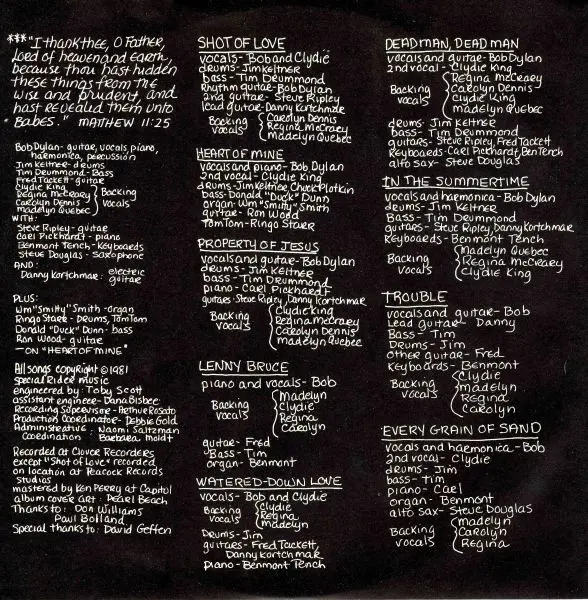 ***"I thank thee, O Father,
Lord of heaven and Earth,
because thou hast hidden
these things from the
wise and prudent, and
hast revealed them unto
babes." MATTHEW 11:25
Bob Dylan - guitar, vocals, piano,
harmonica, percussion
Jim Keltner - drums
Tim Drummond - Bass
Fred Tackett - guitar
Clydie King
Regina McCrary
Carolyn Dennis
Madelyn Quebec
Backing
vocals
WITH:
Steve Ripley - guitar
Carl Pickhardt - piano
Benmont Tench - Keyboards
Steve Douglas - Saxophone
AND:
Danny Kortchmar: electric
guitar
PLUS:
Wm "Smitty" Smith - organ
Ringo Starr - Drums, TomTom
Donald "Duck" Dunn - bass
Ron Wood - guitar
- ON "HEART OF MINE"
All songs copyright © 1981
Special Rider Music
engineered by: Toby Scott
assistant engineer - Dana Bisbee
Recording Supervisor - Arthur Rosato
Production Coordinator - Debbie Gold
Administration: Naomi Saltzman
Coordination: Barbara Moldt
Recorded at Clover Recorders
except "Shot of Love" recorded
on location at Peacock Records
studios
mastered by Ken Perry at Capitol
album cover art: Pearl Beach
Thanks to: Don Williams
Paul Bolland
Special thanks to: David Geffen
SHOT OF LOVE
vocals - Bob and Clydie
drums - Jim Keltner
bass - Tim Drummond
Rhythm guitar - Bob Dylan
2nd guitar - Steve Ripley
lead guitar - Danny Kortchmar
Backing
vocals
Carolyn Dennis
Regina McCrary
Madelyn Quebec
HEART OF MINE
vocals and piano - Bob Dylan
2nd vocal - Clydie King
drums Jim Keltner, Chuck Plotkin
bass Donald "Duck" Dunn
organ - Wm "Smitty" Smith
guitar - Ron Wood
Tom Tom - Ringo Starr
PROPERTY OF JESUS
vocals and guitar - Bob Dylan
drums - Jim Keltner
Bass - Tim Drummond
piano - Carl Pickhardt
guitars - Steve Ripley, Danny Kortchmar
Backing
vocals
Clydie King
Regina McCrary
Carolyn Dennis
Madelyn Quebec
LENNY BRUCE
piano and vocals - Bob
Backing
vocals
Madelyn
Clydie
Regina
Carolyn
guitar - Fred
Bass - Tim
organ - Benmont
WATERED-DOWN LOVE
vocals - Bob and Clydie
Backing
vocals
Clydie
Regina
Madelyn
Drums - Jim
guitars - Fred Tackett,
Danny Kortchmar
piano - Benmont Tench
DEAD MAN, DEAD MAN
vocals and guitar - Bob Dylan
2nd vocal - Clydie King
Backing
vocals
Regina McCrary
Carolyn Dennis
Clydie King
Madelyn Quebec
drums - Jim Keltner
bass - Tim Drummond
guitars - Steve Ripley, Fred Tackett
Keyboards - Carl Pickhardt, Ben Tench
alto sax - Steve Douglas
IN THE SUMMERTIME
vocals and harmonica - Bob Dylan
drums - Jim Keltner
Bass - Tim Drummond
guitars - Steve Ripley, Danny Kortchmar
Keyboards - Benmont Tench
Backing
vocals
Madelyn Quebec
Regina McCrary
Clydie King
TROUBLE
vocals and guitar - Bob
Lead guitar - Danny
Bass - Tim
Drums - Jim
other guitar - Fred
Keyboards - Benmont
Backing
vocals
Clydie
Madelyn
Regina
Carolyn
EVERY GRAIN OF SAND
vocals and harmonica - Bob
2nd vocal - Clydie
drums - Jim
bass - Tim
piano - Carl
organ - Benmont
alto sax - Steve Douglas
Backing
vocals
Madelyn
Carolyn
Regina